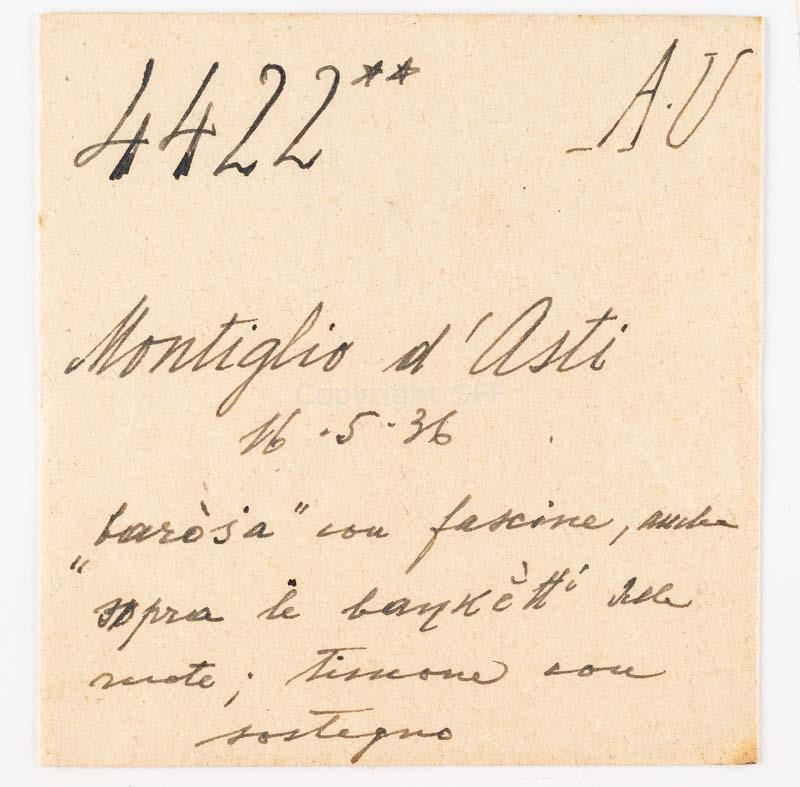 4422** A.U
Montiglio d'Asti
16.5.36
"baròsa" con fascine, anche
sopra le baŋkètti delle
ruote; timone con
sostegno
Copyright SFF